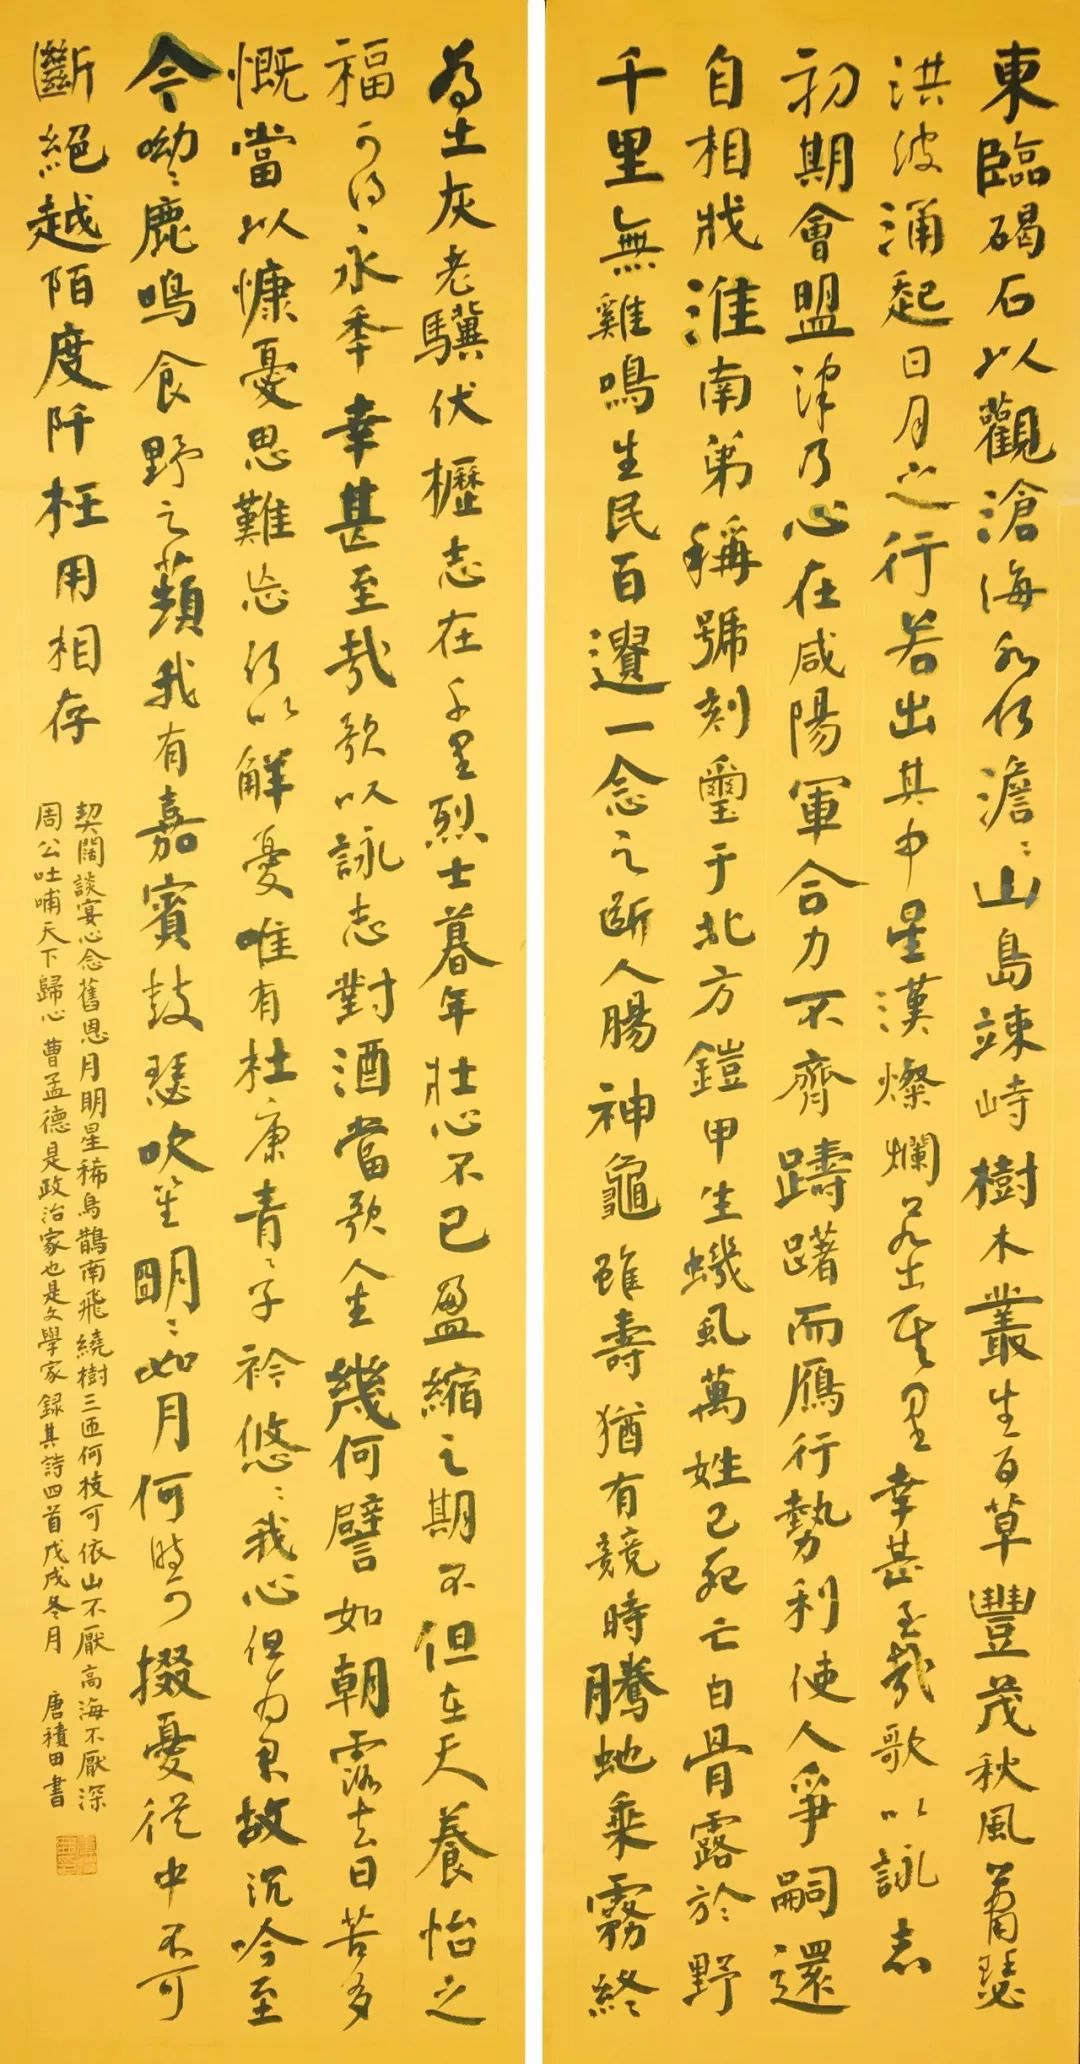 東臨碣石以觀滄海水何澹〻山島竦峙樹木叢生百草豐茂秋風蕭瑟
洪波涌起日月之行若出其中星漢燦爛若出其里幸甚至哉歌以詠志
初期會盟津乃心在咸陽軍合力不齊躊躇而鴈行勢利使人爭嗣還
自相戕淮南弟稱號刻璽于北方鎧甲生蟣虱萬姓已死亡白骨露於野
千里無雞鳴生民百遺一念之斷人腸神龜雖壽猶有競時騰虵乘霧終
為土灰老驥伏櫪志在千里烈士暮年壯心不已盈縮之期不但在天養怡之
福可得永秊幸甚至哉歌以詠志對酒當歌人生幾何譬如朝露去日苦多
慨當以慷憂思難忘何以解憂唯有杜康青〻子衿悠〻我心但為君故沉吟至
今呦〻鹿鳴食野之蘋我有嘉賓鼓瑟吹笙明〻如月何時可掇憂從中不可
斷絕越陌度阡枉用相存
契闊談宴心念舊恩月明星稀烏鵲南飛繞樹三匝何枝可依山不厭高海不厭深
周公吐哺天下歸心 曹孟德是政治家也是文學家録其詩四首戊戌冬月 唐積田書